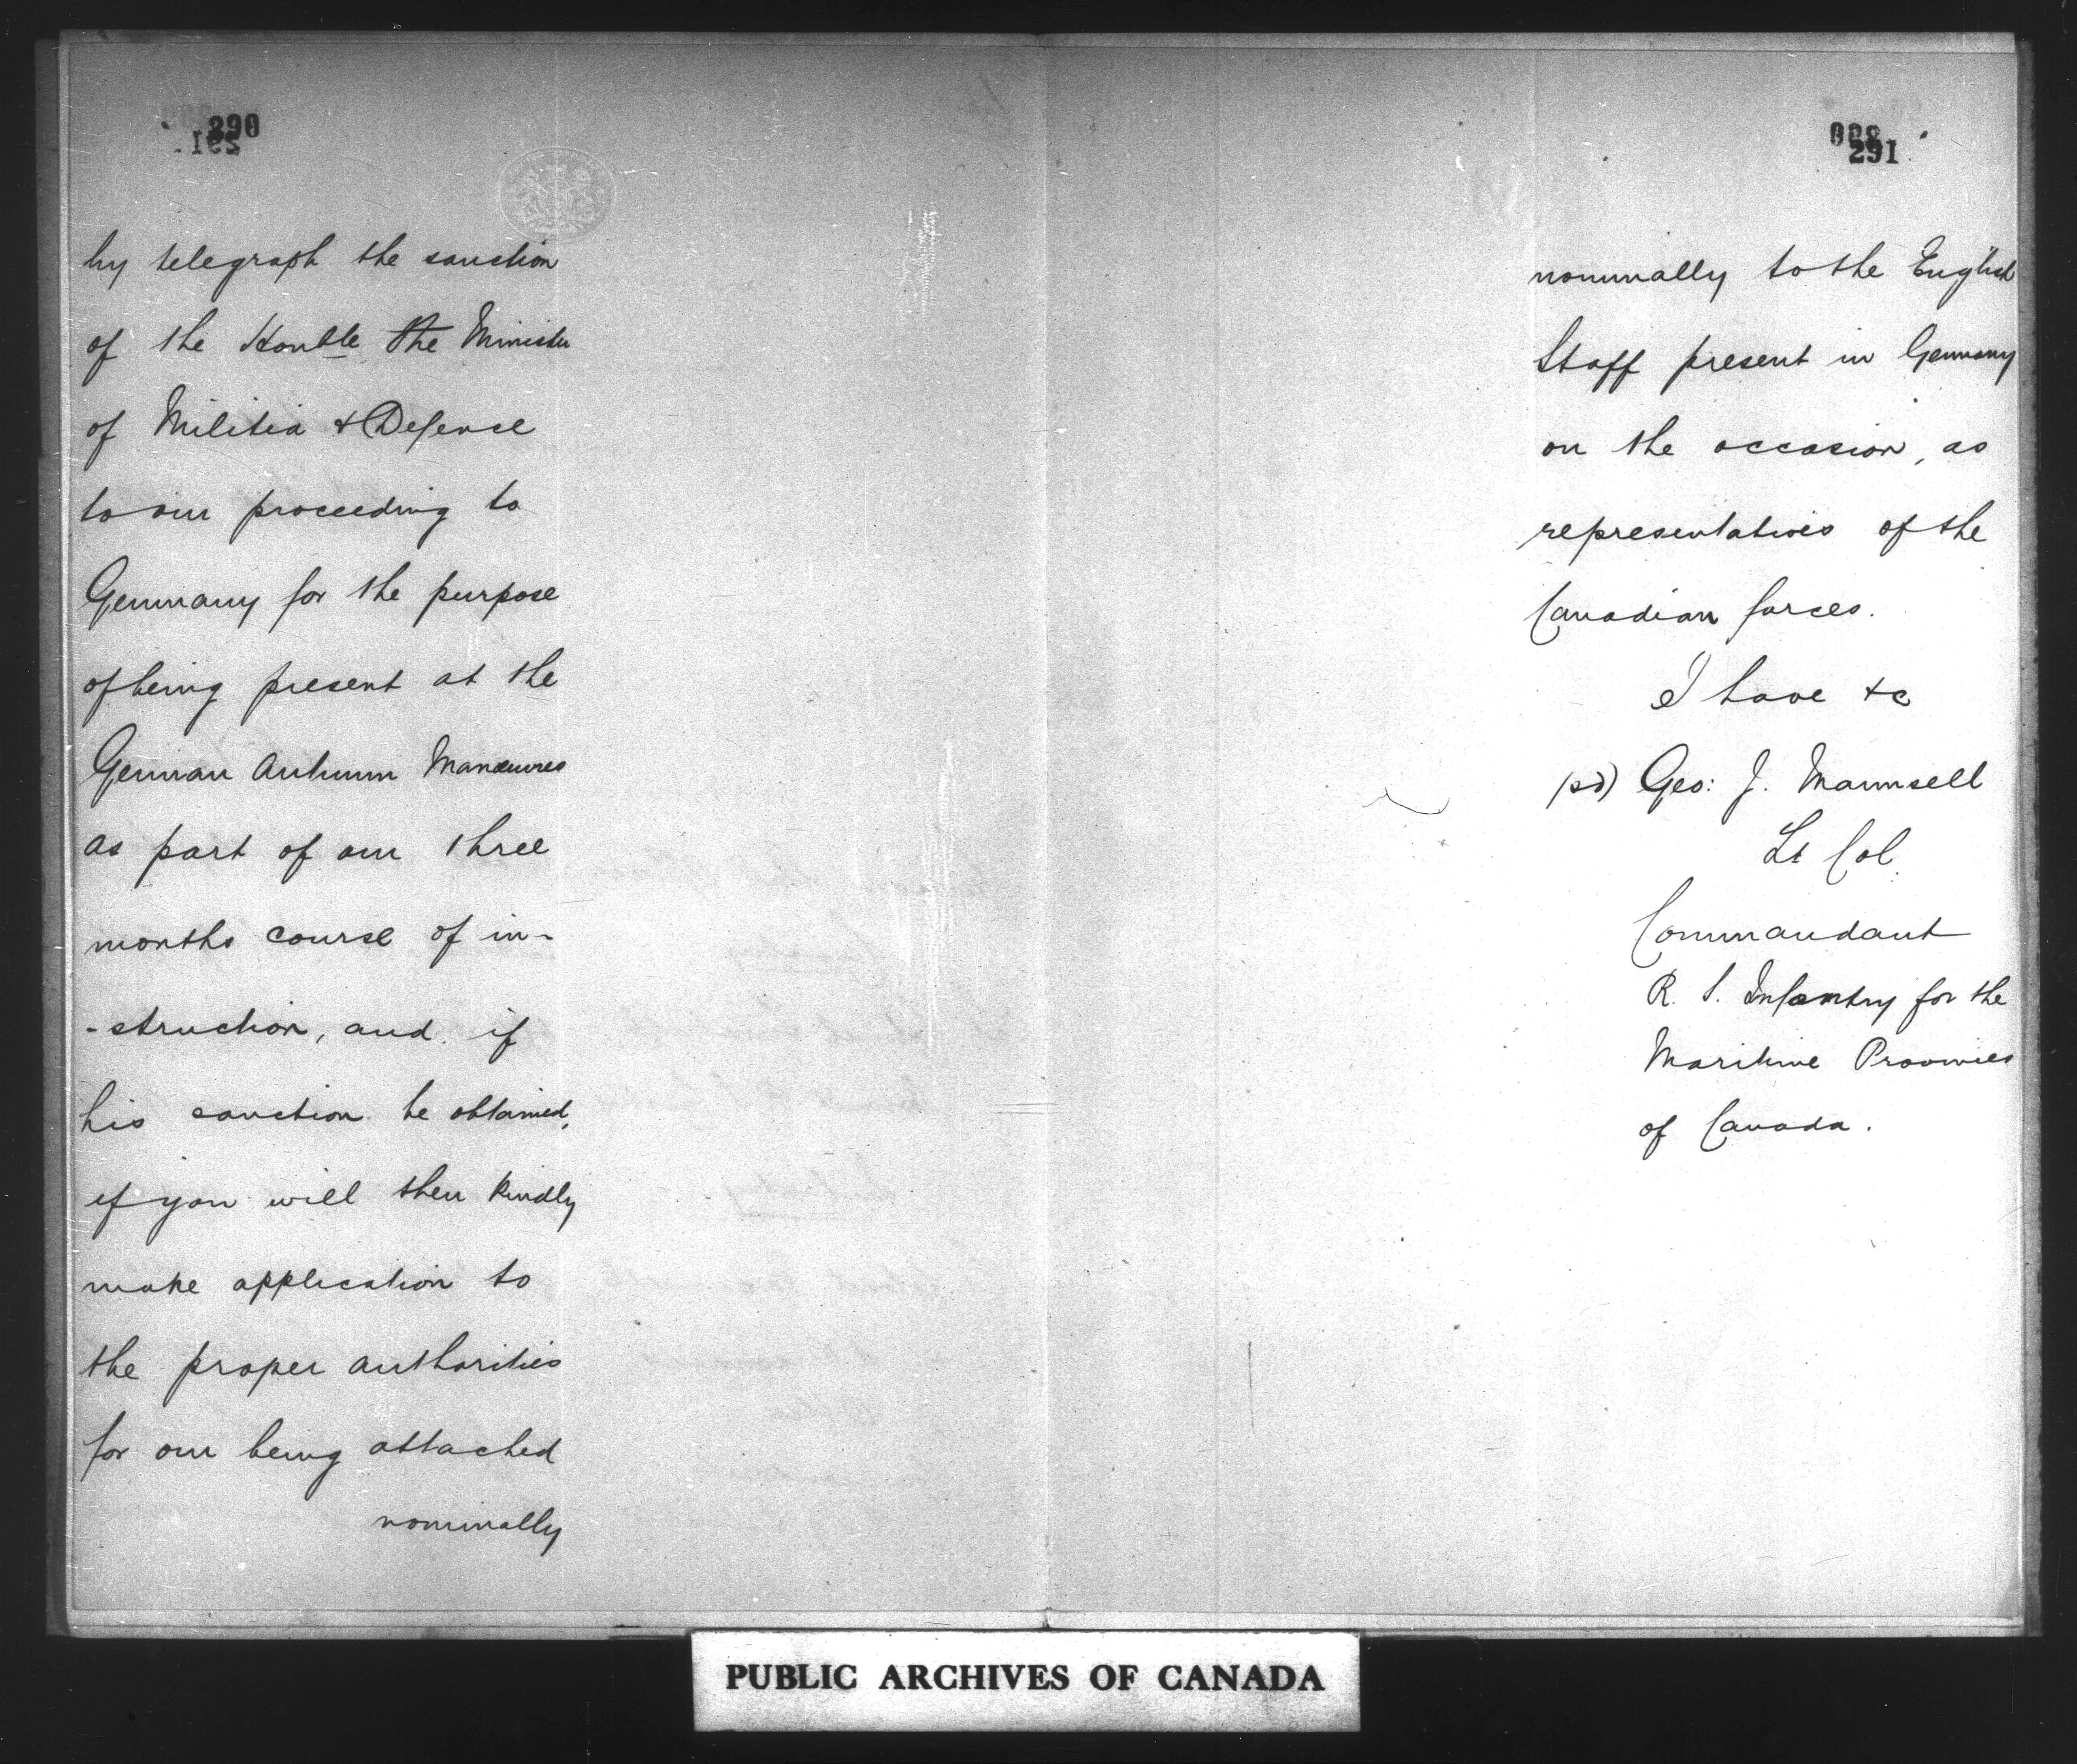 290
by telegraph the sanction
of the Honble the Minister
of Militia & Defence
to our proceeding to
Germany for the purpose
of being present at the
German Autumn Manœuvres
as part of our three
months course of in-
-struction, and if
his sanction be obtained,
if you will then kindly
make application to
the proper authorities
for our being attached
nominally
291
nominally to the English
Staff present in Germany
on the occasion, as
representatives of the
Canadian forces.
I have &c
(sd) Geo: J. Maunsell
Lt Col.
Commandant
R. S. Infantry for the
Maritime Provinces
of Canada.
PUBLIC ARCHIVES OF CANADA